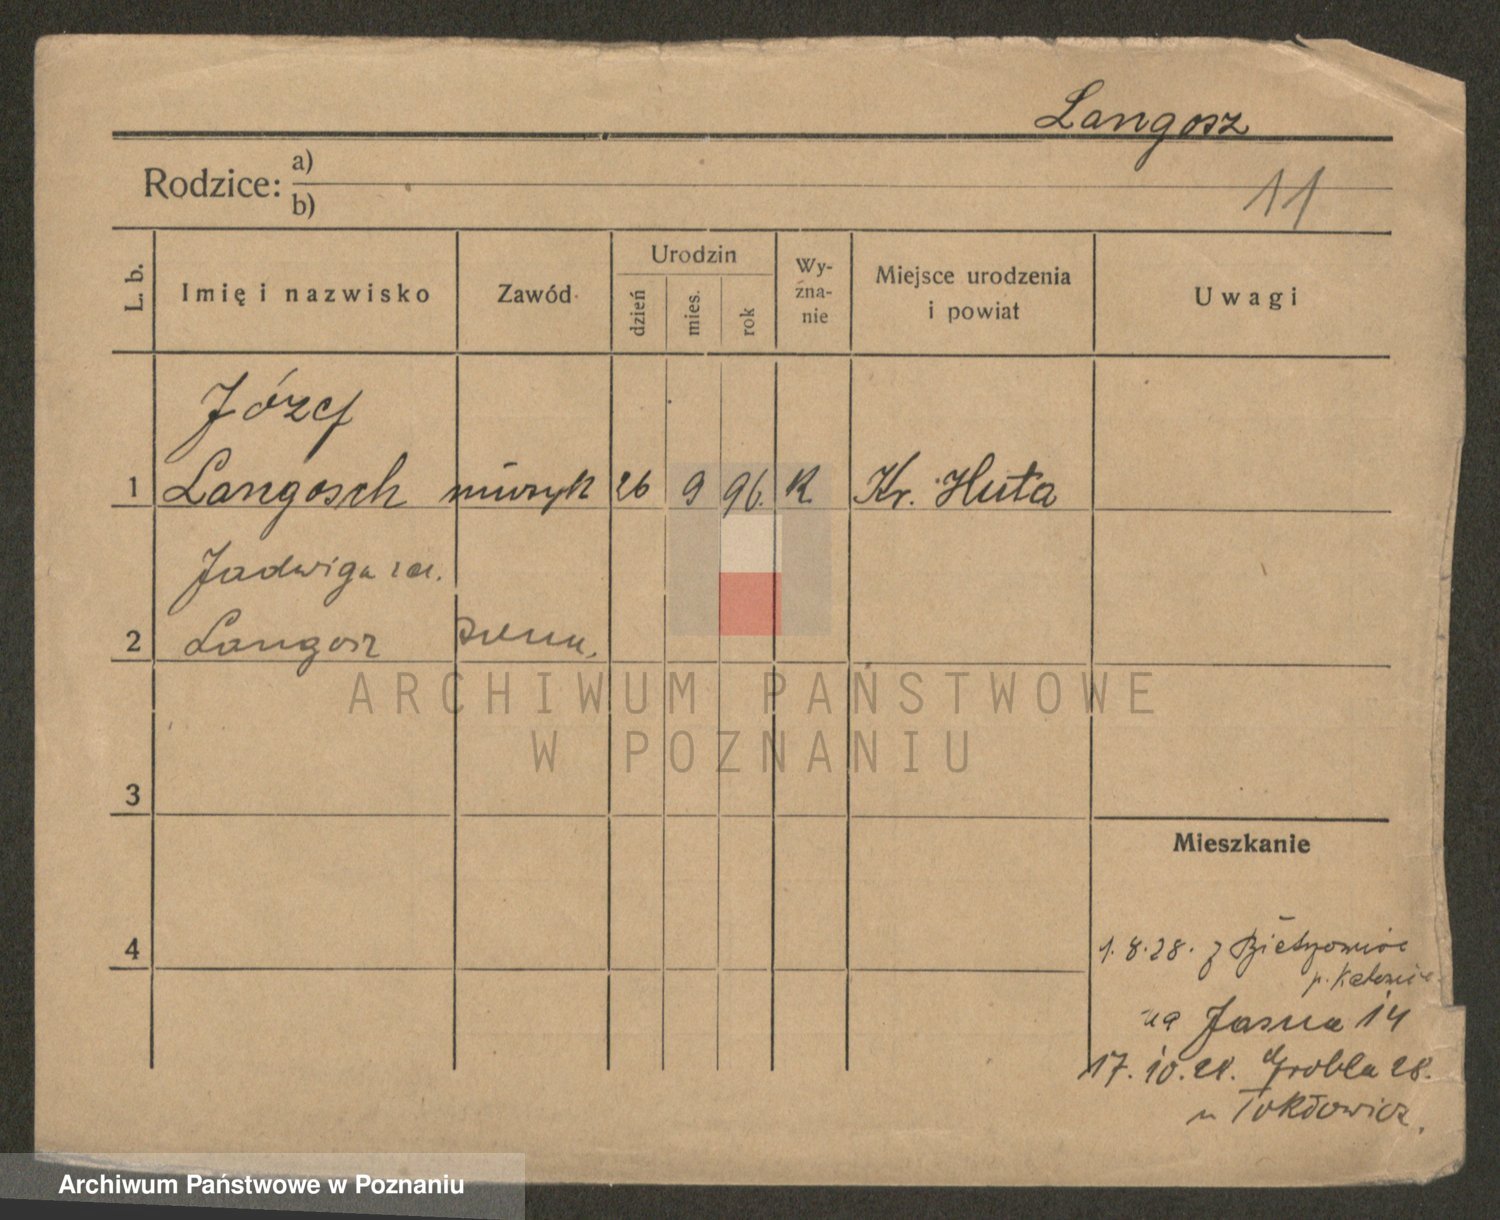 Langosz
Rodzice: a)
b)
11
L. b.
Imię i nazwisko
Zawód
Urodzin
dzień
mies.
rok
Wy-
zna-
nie
Miejsce urodzenia
i powiat
Uwagi
Józef
1 Langosch muzyk 26 9 96. K. Kr. Huta
Jadwiga
2 Langosz
3
4
Mieszkanie
1.8.28. z
p.
na Jasna 14
17.10.28. Grobla 28.
u
ARCHIWUM PAŃSTWOWE
W POZNANIU
Archiwum Państwowe w Poznaniu